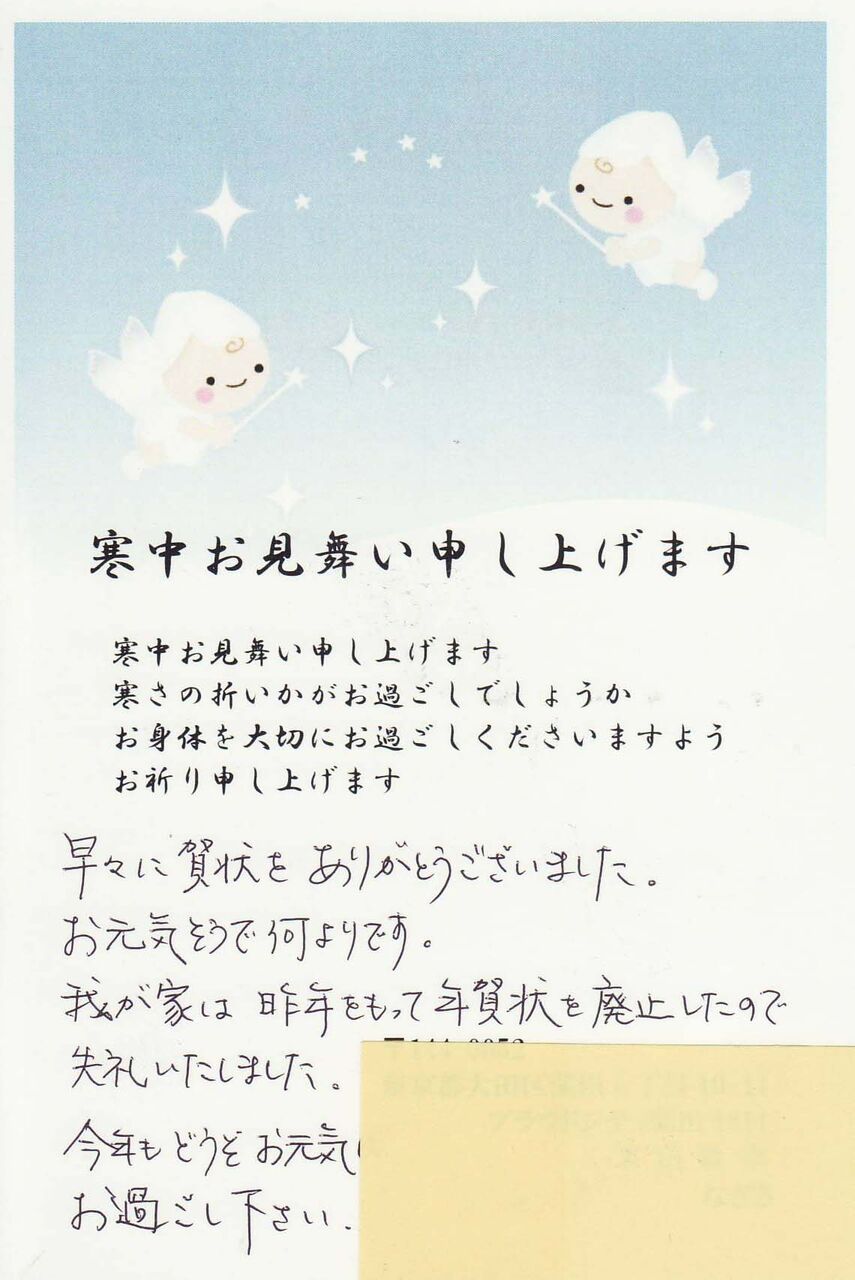 寒中お見舞い申し上げます
寒中お見舞い申し上げます
寒さの折いかがお過ごしでしょうか
お身体を大切にお過ごしくださいますよう
お祈り申し上げます
早々に賀状をありがとうございました。
お元気そうで何よりです。
我が家は昨年をもって年賀状を廃止したので
失礼いたしました。
今年もどうぞお元気に
お過ごし下さい.